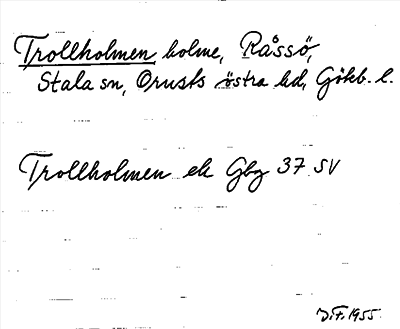 Trollholmen holme, Råssö,
Stala sn, Orusts östra hd, Gökb. l.
Trollholmen ek Gbg 37 SV
D.F. 1955.